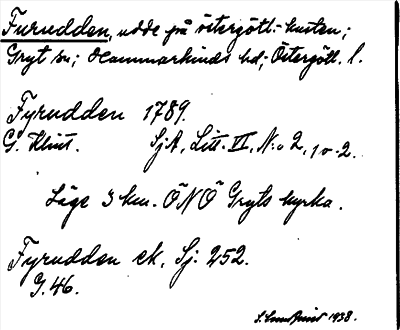 Furudden, udde på östergötl.-kusten;
Gryt sn; Hammarkinds hd; Östergötl. l.
Fyrudden 1789.
G. Klint. SjA, Litt. VI, N:o 2, 1 o. 2.
Läge 3 km. ÖNÖ Gryts kyrka.
Fyrudden ek, Sj. 252.
G. 46.
S. Lundquist 1938.